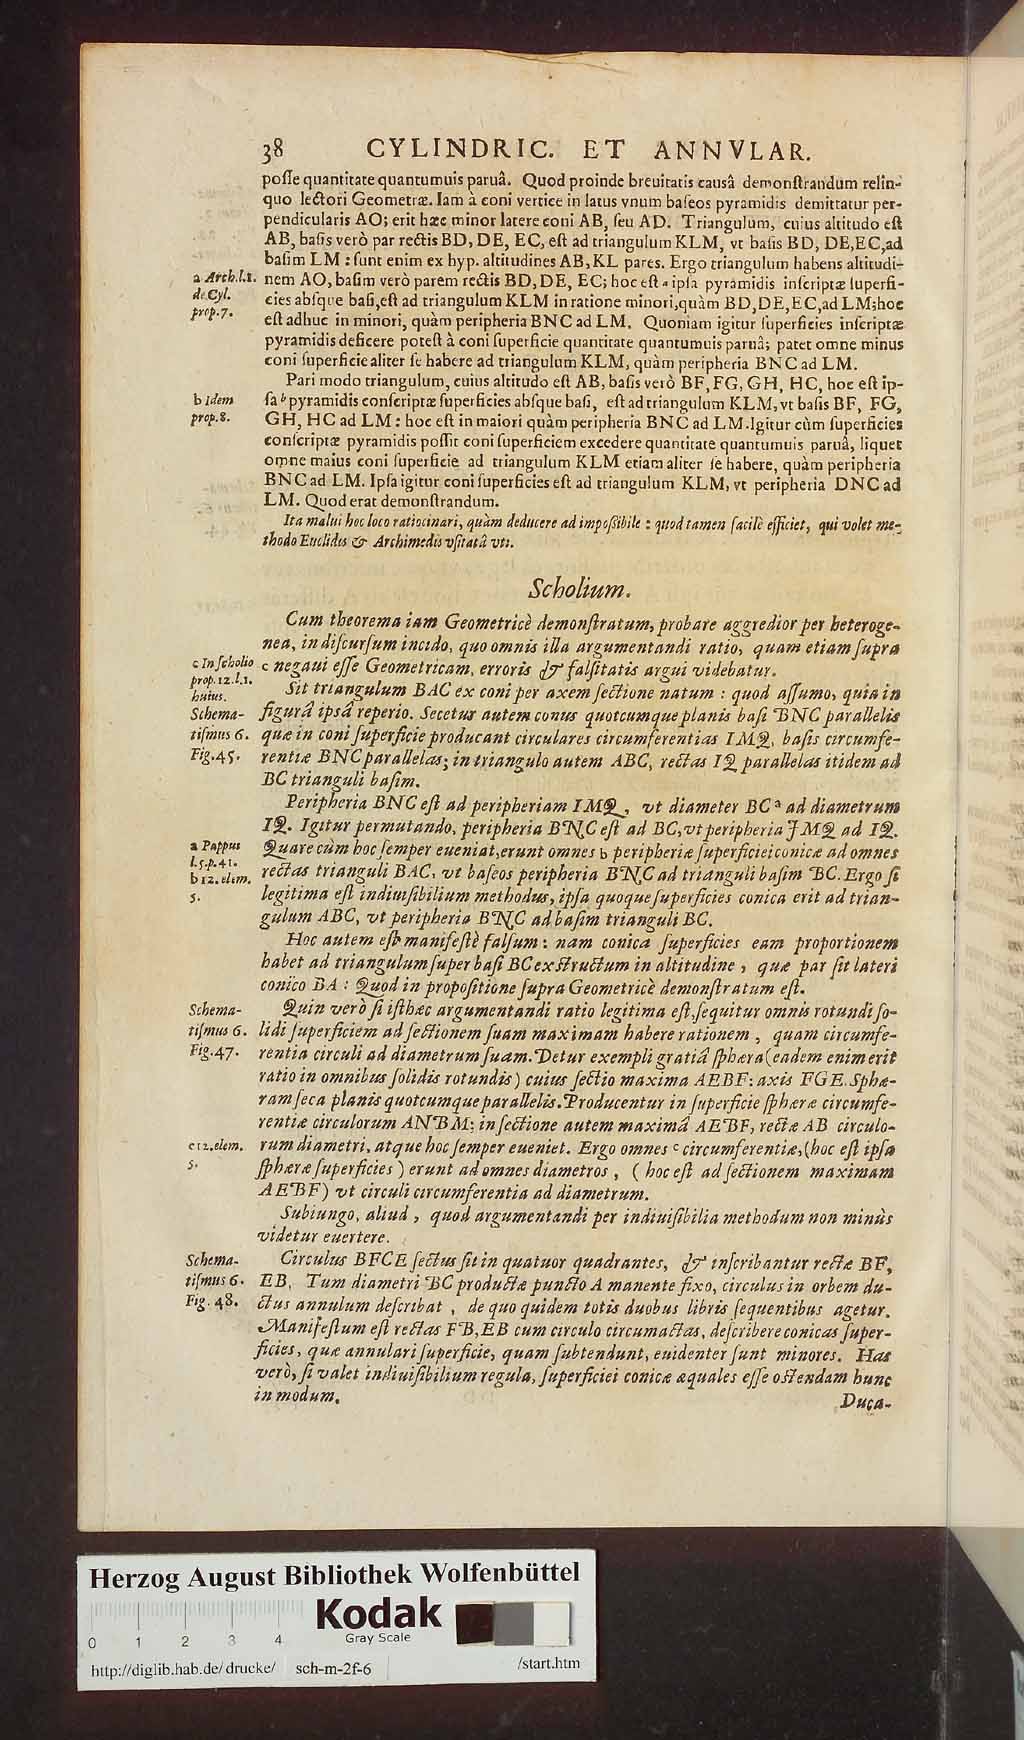 38 CYLINDRIC. ET ANNVLAR.
posse quantitate quantumuis paruâ. Quod proinde breuitatis causâ demonstrandum relin-
quo lectori Geometræ. Iam à coni vertice in latus vnum baseos pyramidis demittatur per-
pendicularis AO; erit hæc minor latere coni AB, seu AD. Triangulum, cuius altitudo est
AB, basis verò par rectis BD, DE, EC, est ad triangulum KLM, vt basis BD, DE, EC, ad
basim LM: sunt enim ex hyp. altitudines AB, KL pares. Ergo triangulum habens altitudi-
a Arch. l. 1.
de Cyl.
prop. 7.
nem AO, basim verò parem rectis BD, DE, EC; hoc est a ipsa pyramidis inscriptæ superfi-
cies absque basi, est ad triangulum KLM in ratione minori, quàm BD, DE, EC, ad LM; hoc
est adhuc in minori, quàm peripheria BNC ad LM. Quoniam igitur superficies inscriptæ
pyramidis deficere potest à coni superficie quantitate quantumuis paruâ; patet omne minus
coni superficie aliter se habere ad triangulum KLM, quàm peripheria BNC ad LM.
Pari modo triangulum, cuius altitudo est AB, basis verò BF, FG, GH, HC, hoc est ip-
b Idem
prop. 8.
sa b pyramidis conscriptæ superficies absque basi, est ad triangulum KLM, vt basis BF, FG,
GH, HC ad LM: hoc est in maiori quàm peripheria BNC ad LM. Igitur cùm superficies
conscriptæ pyramidis possit coni superficiem excedere quantitate quantumuis paruâ, liquet
omne maius coni superficie ad triangulum KLM etiam aliter se habere, quàm peripheria
BNC ad LM. Ipsa igitur coni superficies est ad triangulum KLM, vt peripheria DNC ad
LM. Quod erat demonstrandum.
Ita malui hoc loco ratiocinari, quàm deducere ad impossibile: quod tamen facilè efficiet, qui volet me-
thodo Euclidis & Archimedis vsitatâ vti.
Scholium.
Cum theorema iam Geometricè demonstratum, probare aggredior per heteroge-
nea, in discursum incido, quo omnis illa argumentandi ratio, quam etiam supra
c In scholio
prop. 12. l. 1.
huius.
c negaui esse Geometricam, erroris & falsitatis argui videbatur.
Sit triangulum BAC ex coni per axem sectione natum: quod assumo, quia in
Schema-
tismus 6.
Fig. 45.
figurâ ipsâ reperio. Secetur autem conus quotcumque planis basi BNC parallelis
quæ in coni superficie producant circulares circumferentias IMQ, basis circumfe-
rentiæ BNC parallelas; in triangulo autem ABC, rectas IQ parallelas itidem ad
BC trianguli basim.
Peripheria BNC est ad peripheriam IMQ, vt diameter BC a ad diametrum
IQ. Igitur permutando, peripheria BNC est ad BC, vt peripheria IMQ ad IQ.
a Pappus
l. 5. p. 41.
b 12. elem.
5.
Quare cùm hoc semper eueniat, erunt omnes b peripheriæ superficiei conicæ ad omnes
rectas trianguli BAC, vt baseos peripheria BNC ad trianguli basim BC. Ergo si
legitima est indiuisibilium methodus, ipsa quoque superficies conica erit ad trian-
gulum ABC, vt peripheria BNC ad basim trianguli BC.
Hoc autem est manifestè falsum: nam conica superficies eam proportionem
habet ad triangulum super basi BC exstructum in altitudine, quæ par sit lateri
conico BA: Quod in propositione supra Geometricè demonstratum est.
Schema-
tismus 6.
Fig. 47.
Quin verò si isthæc argumentandi ratio legitima est, sequitur omnis rotundi so-
lidi superficiem ad sectionem suam maximam habere rationem, quam circumfe-
rentia circuli ad diametrum suam. Detur exempli gratiâ sphæra (eadem enim erit
ratio in omnibus solidis rotundis) cuius sectio maxima AEBF: axis FGE. Sphæ-
ram seca planis quotcumque parallelis. Producentur in superficie sphæræ circumfe-
rentiæ circulorum ANBM; in sectione autem maximâ AEBF, rectæ AB circulo-
c 12. elem.
5.
rum diametri, atque hoc semper eueniet. Ergo omnes c circumferentiæ, (hoc est ipsa
sphæræ superficies) erunt ad omnes diametros, (hoc est ad sectionem maximam
AEBF) vt circuli circumferentia ad diametrum.
Subiungo, aliud, quod argumentandi per indiuisibilia methodum non minùs
videtur euertere.
Schema-
tismus 6.
Fig. 48.
Circulus BFCE sectus sit in quatuor quadrantes, & inscribantur rectæ BF,
EB. Tum diametri BC productæ puncto A manente fixo, circulus in orbem du-
ctus annulum describat, de quo quidem totis duobus libris sequentibus agetur.
Manifestum est rectas FB, EB cum circulo circumactas, describere conicas super-
ficies, quæ annulari superficie, quam subtendunt, euidenter sunt minores. Has
verò, si valet indiuisibilium regula, superficiei conicæ æquales esse ostendam hunc
in modum.
Duca-
Herzog August Bibliothek Wolfenbüttel
Kodak
Gray Scale
0 1 2 3 4
http://diglib.hab.de/drucke/ sch-m-2f-6 /start.htm